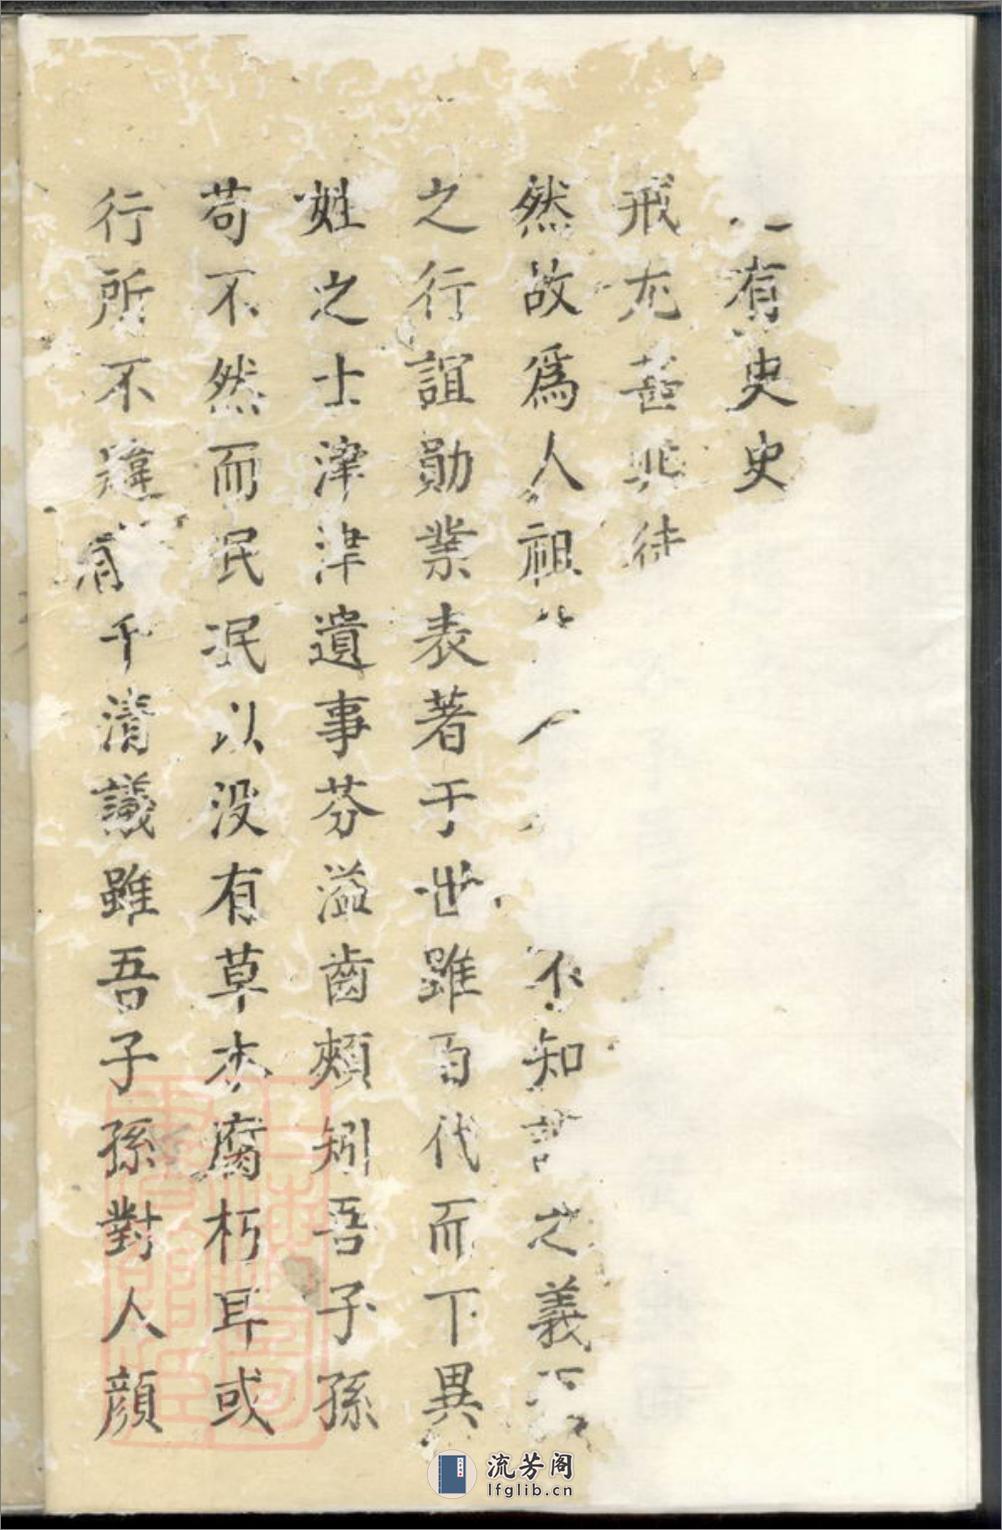 有史史
戒尤甚
徒
然故爲人祖
不知
之義
之行誼勛業表著于世雖百代而下異
姓之士津津遺事芬溢齒頰矧吾子孫
苟不然而民泯以没有草木腐朽耳或
行所不違有干清議雖吾子孫對人顔
流芳阁
lfglib.cn